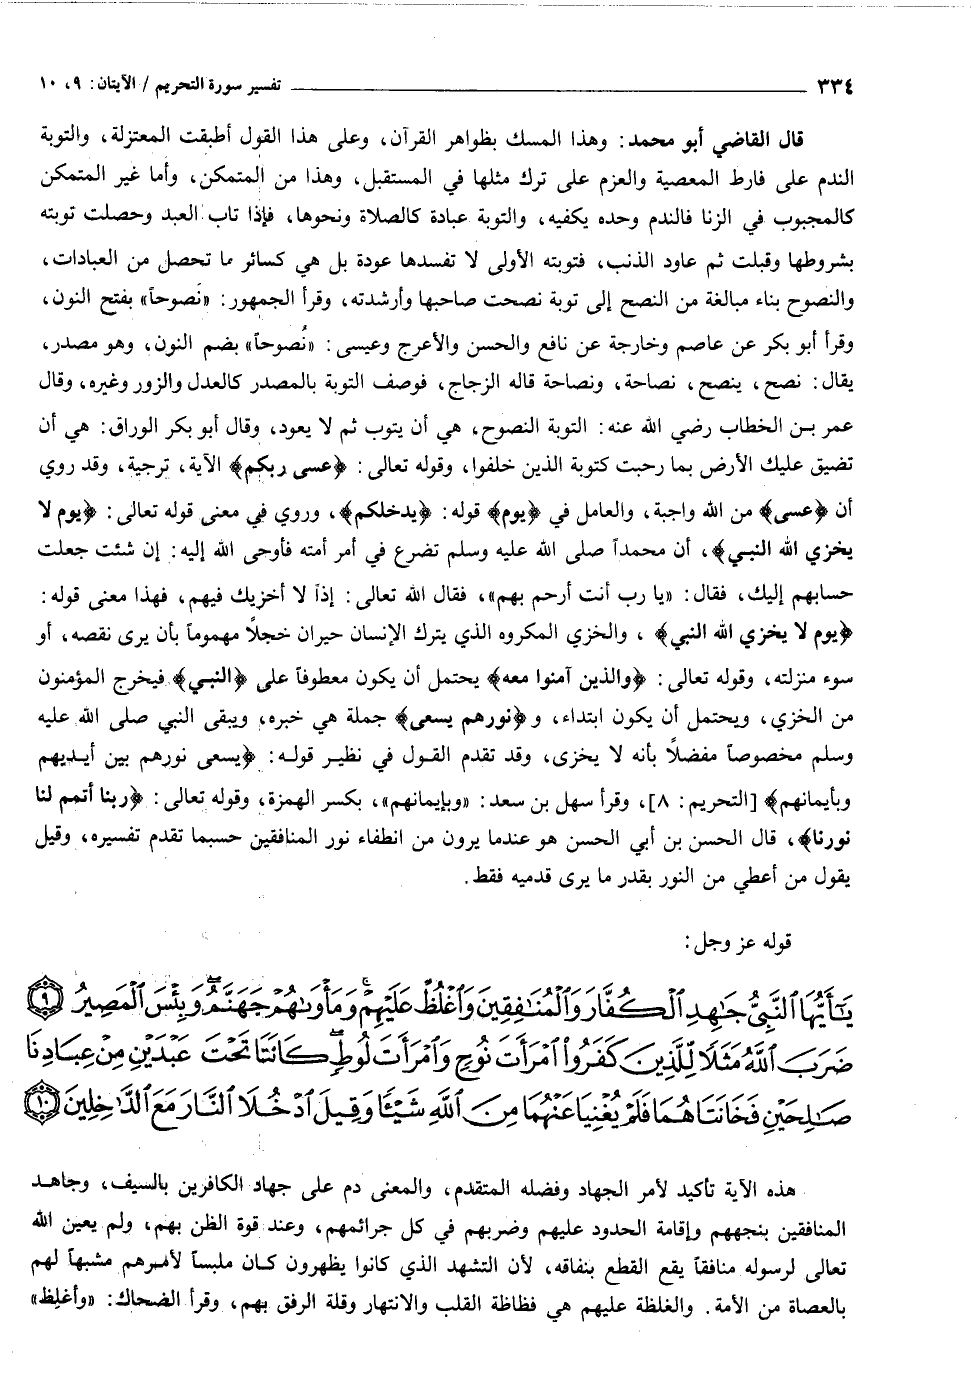 ٣٣٤ ــــــــــــــــــــــــــــــــــــــــ تفسير سورة التحريم / الآيتان: ٩، ١٠
قال القاضي أبو محمد: وهذا المسك بظواهر القرآن، وعلى هذا القول أطبقت المعتزلة، والتوبة
الندم على فارط المعصية والعزم على ترك مثلها في المستقبل، وهذا من المتمكن، وأما غير المتمكن
كالمجبوب في الزنا فالندم وحده يكفيه، والتوبة عبادة كالصلاة ونحوها، فإذا تاب العبد وحصلت توبته
بشروطها وقبلت ثم عاود الذنب، فتوبته الأولى لا تفسدها عودة بل هي كسائر ما تحصل من العبادات،
والنصوح بناء مبالغة من النصح إلى توبة نصحت صاحبها وأرشدته، وقرأ الجمهور: «نَصوحاً» بفتح النون،
وقرأ أبو بكر عن عاصم وخارجة عن نافع والحسن والأعرج وعيسى: «نُصوحاً» بضم النون، وهو مصدر،
يقال: نصح، ينصح، نصاحة، ونصاحة قاله الزجاج، فوصف التوبة بالمصدر كالعدل والزور وغيره، وقال
عمر بن الخطاب رضي الله عنه: التوبة النصوح، هي أن يتوب ثم لا يعود، وقال أبو بكر الوراق: هي أن
تضيق عليك الأرض بما رحبت كتوبة الذين خلفوا، وقوله تعالى: ﴿عسى ربكم﴾ الآية، ترجية، وقد روي
أن ﴿عسى﴾ من الله واجبة، والعامل في ﴿يوم﴾ قوله: ﴿يدخلكم﴾، وروي في معنى قوله تعالى: ﴿يوم لا
يخزي الله النبي﴾، أن محمداً صلى الله عليه وسلم تضرع في أمر أمته فأوحى الله إليه: إن شئت جعلت
حسابهم إليك، فقال: «يا رب أنت أرحم بهم»، فقال الله تعالى: إذاً لا أخزيك فيهم، فهذا معنى قوله:
﴿يوم لا يخزي الله النبي﴾ ، والخزي المكروه الذي يترك الإنسان حيران خجلًا مهموماً بأن يرى نقصه، أو
سوء منزلته، وقوله تعالى: ﴿والذين آمنوا معه﴾ يحتمل أن يكون معطوفاً على ﴿النبي﴾ فيخرج المؤمنون
من الخزي، ويحتمل أن يكون ابتداء، و﴿نورهم يسعى﴾ جملة هي خبره، ويبقى النبي صلى الله عليه
وسلم مخصوصاً مفضلًا بأنه لا يخزى، وقد تقدم القول في نظير قوله: ﴿يسعى نورهم بين أيديهم
وبأيمانهم﴾ [التحريم: ٨]، وقرأ سهل بن سعد: «وبإيمانهم»، بكسر الهمزة، وقوله تعالى: ﴿ربنا أتمم لنا
نورنا﴾، قال الحسن بن أبي الحسن هو عندما يرون من انطفاء نور المنافقين حسبما تقدم تفسيره، وقيل
يقول من أعطي من النور بقدر ما يرى قدميه فقط.
قوله عز وجل:
يَـٰٓأَيُّهَا ٱلنَّبِىُّ جَـٰهِدِ ٱلْكُفَّارَ وَٱلْمُنَـٰفِقِينَ وَٱغْلُظْ عَلَيْهِمْ ۚ وَمَأْوَىٰهُمْ جَهَنَّمُ ۖ وَبِئْسَ ٱلْمَصِيرُ ٩
ضَرَبَ ٱللَّهُ مَثَلًا لِّلَّذِينَ كَفَرُوا۟ ٱمْرَأَتَ نُوحٍ وَٱمْرَأَتَ لُوطٍ ۖ كَانَتَا تَحْتَ عَبْدَيْنِ مِنْ عِبَادِنَا
صَـٰلِحَيْنِ فَخَانَتَاهُمَا فَلَمْ يُغْنِيَا عَنْهُمَا مِنَ ٱللَّهِ شَيْـًٔا وَقِيلَ ٱدْخُلَا ٱلنَّارَ مَعَ ٱلدَّٰخِلِينَ ١٠
هذه الآية تأكيد لأمر الجهاد وفضله المتقدم، والمعنى دم على جهاد الكافرين بالسيف، وجاهد
المنافقين بنجههم وإقامة الحدود عليهم وضربهم في كل جرائمهم، وعند قوة الظن بهم، ولم يعين الله
تعالى لرسوله منافقاً يقع القطع بنفاقه، لأن التشهد الذي كانوا يظهرون كان ملبساً لأمرهم مشبهاً لهم
بالعصاة من الأمة. والغلظة عليهم هي فظاظة القلب والانتهار وقلة الرفق بهم، وقرأ الضحاك: «وأغلظ»